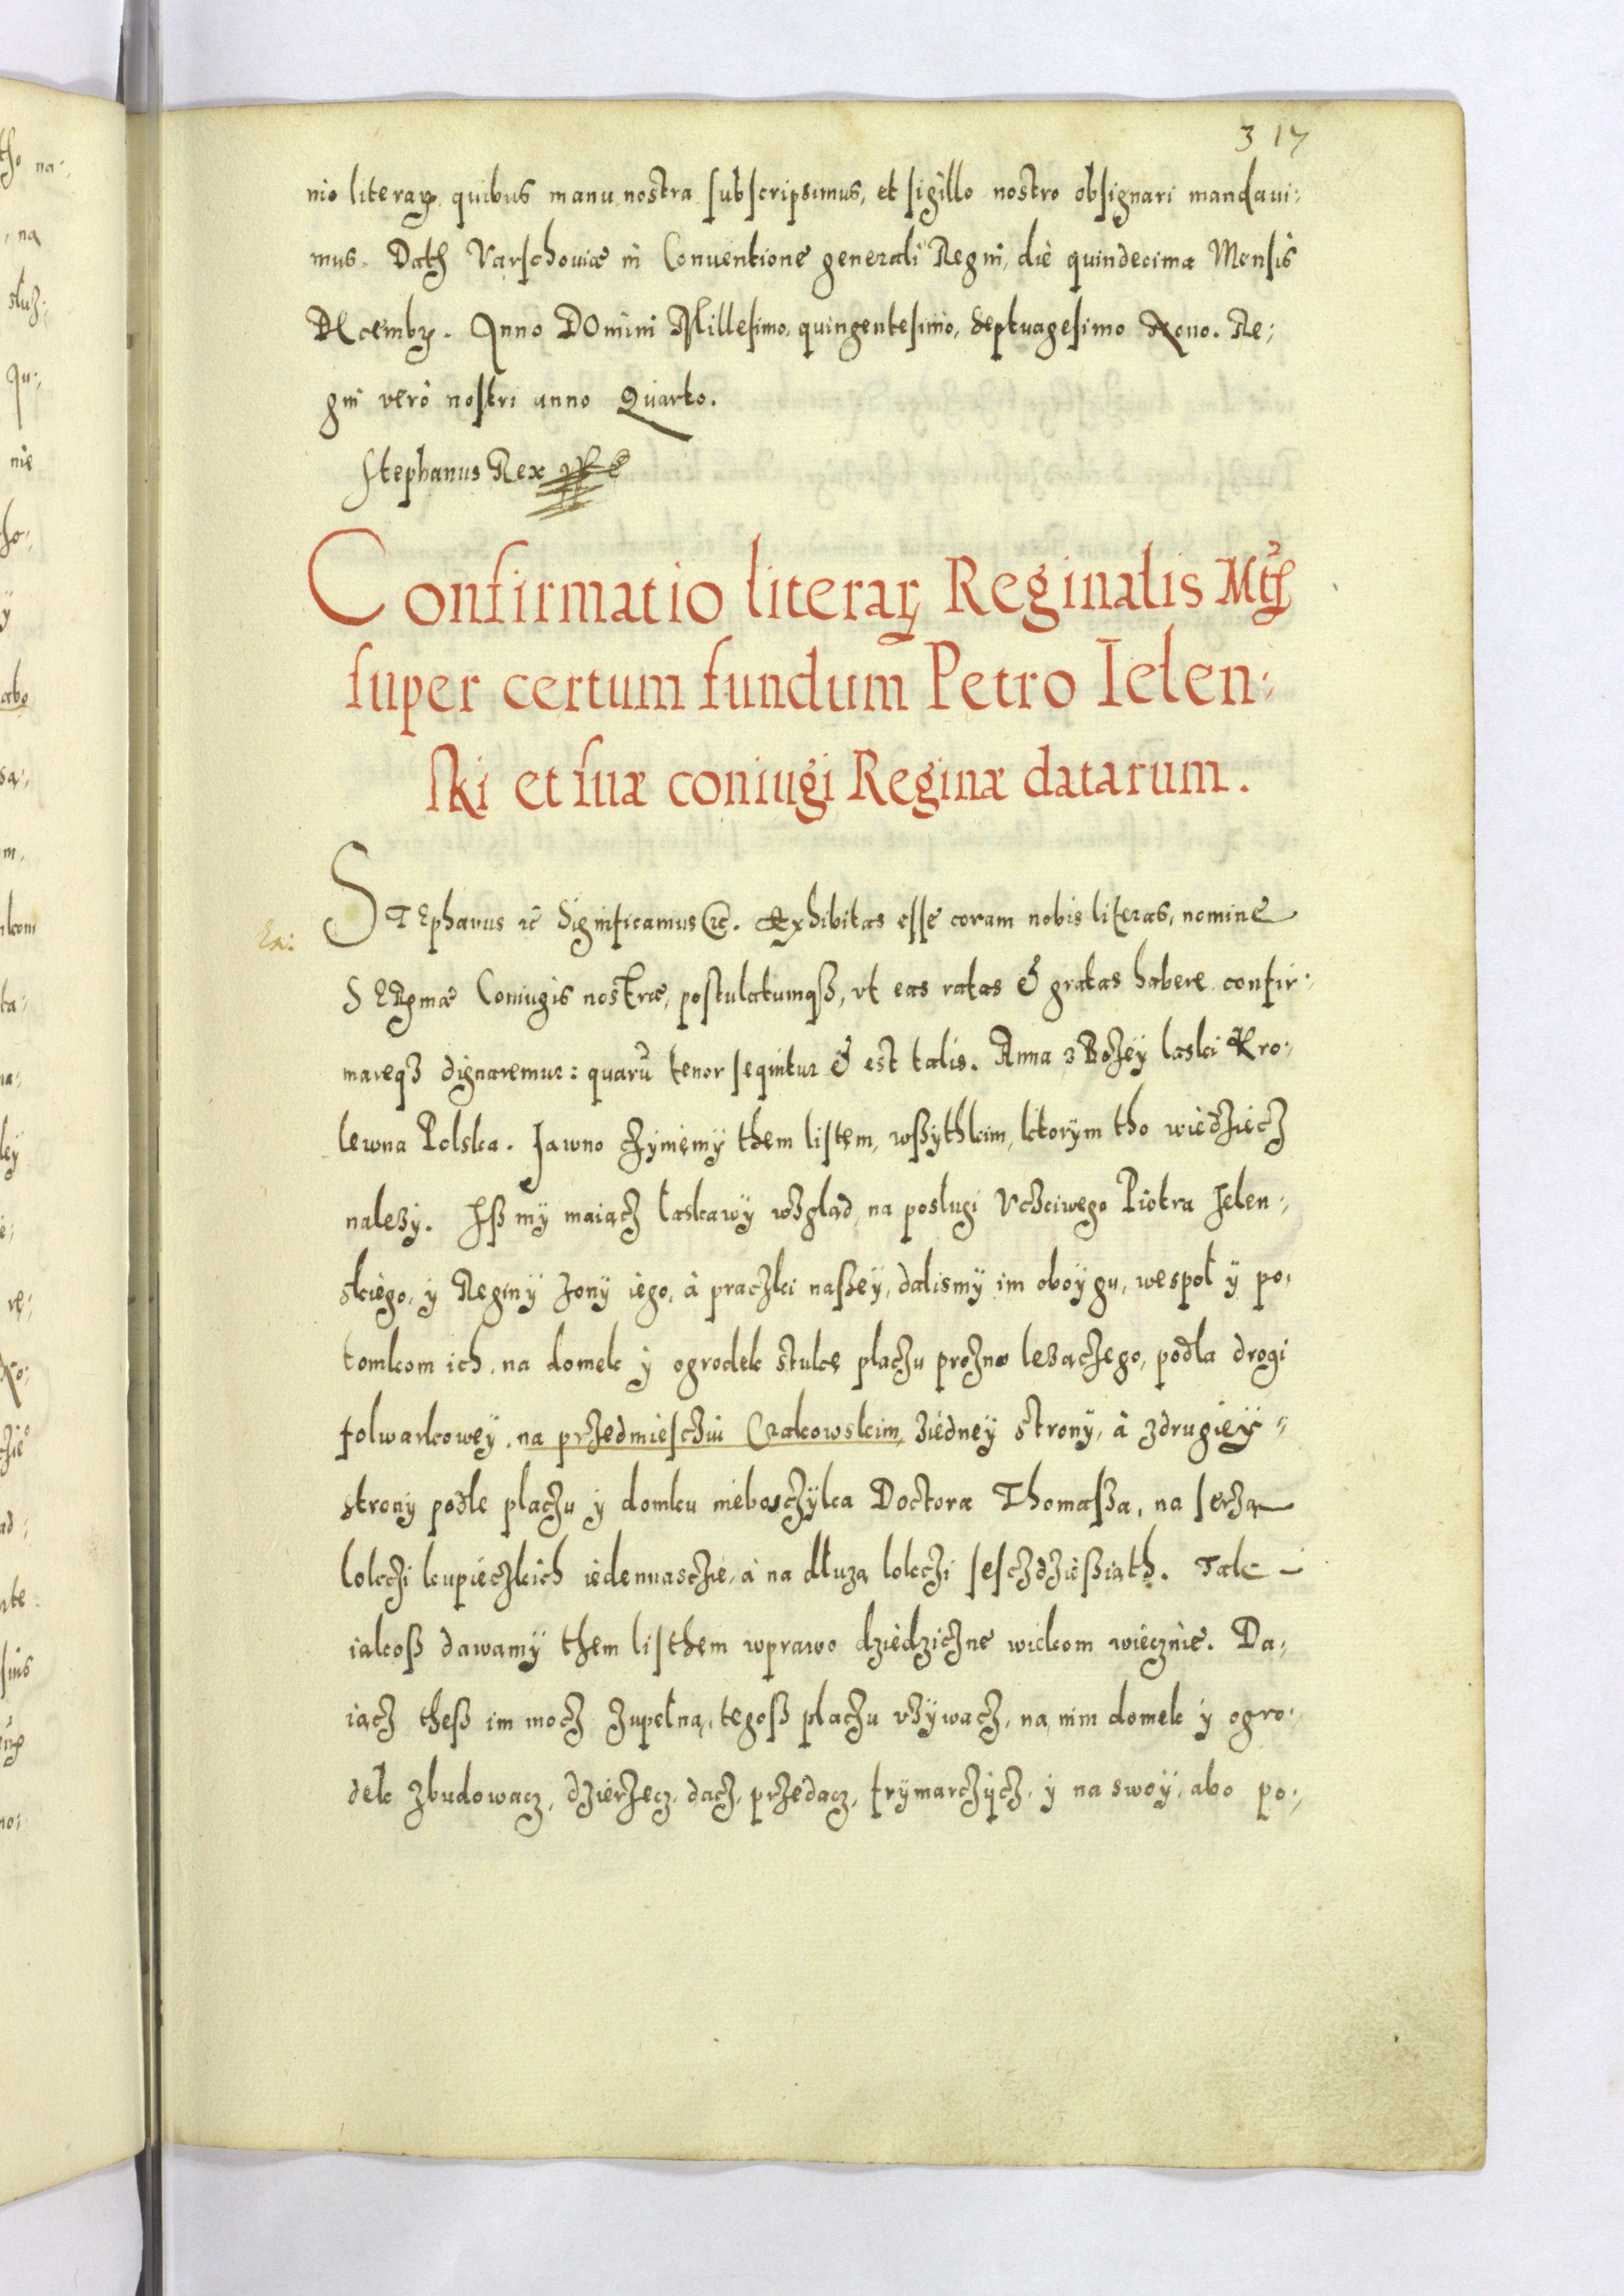 317
nio literaꝝ quibus manu nostra subscripsimus, et sigillo nostro obsignari mandaui:
mus. Datȝ Varschouiæ in Conuentione generali Regni, die quindecima Mensis
DEcembꝝ. Anno DOmini Millesimo, quingentesimo, Septuagesimo Nono. Re:
gni vero nostri anno Quarto.
Stephanus Rex
Confirmatio literaꝝ Reginalis Mtȝ
super certum fundum Petro Ielen:
ski et suæ coniugi Reginæ datarum.
Ex:
STEphanus ꝛc Significamus ꝛc. Exhibitas esse coram nobis literas, nomine
SERgmæ Coniugis nostræ, postulatumqȝ, vt eas ratas & gratas habere confir:
mareqȝ dignaremur: quarū tenor sequitur & est talis. Anna z Bożey laski Kro:
lewna Polska. Jawno czyniemy them listem, wßythkim, ktorym tho wiedziecz
nalezy. Iß my maiącz łaskawy wzgląd na poslugi Vczciwego Piotra Jelen:
skiego, y Reginy zony iego, à praczki naßey, dalismy im oboygu, wespoł y po:
tomkom ich, na domek y ogrodek stukę placzu prozno lezączego, podla drogi
folwarkowey, na przedmiesczu Czakowskim, ziedney strony, à zdrugiey
strony podle placzu y domku nieboszczyka Doctora Thomaßa, na serzą
lokczi kupieczkich iedennasczie, à na dłuzą lokczi sesczdzießiąth. Tak
iakoß dawamy them listhem wprawo dziedziczne wiekom wiecznie. Da:
iącz theß im mocz zupełną, tegoß placzu vzywacz, na nim domek y ogro:
dek zbudowacz, dzierzecz, dacz, przedacz, frymarczycz, y na swoy, abo po: